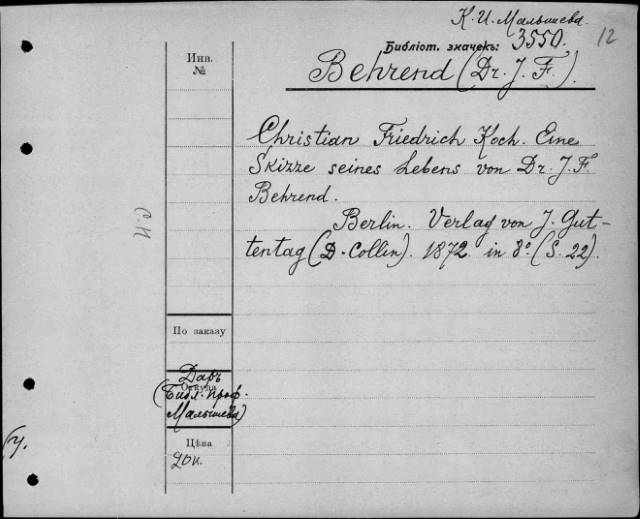 К. И. Малышева.
Библіот. значекъ: 3550.
12
Инв.
№
Behrend (Dr. J. F.)
Christian Friedrich Koch. Eine
Skizze seines Lebens von Dr. J. F.
Behrend.
Berlin. Verlag von J. Gut-
tentag (D. Collin). 1872. in 8º. (S. 22).
По заказу
Даръ
Откуда
(Библ. проф.
Малышева)
Цѣна
20 к.